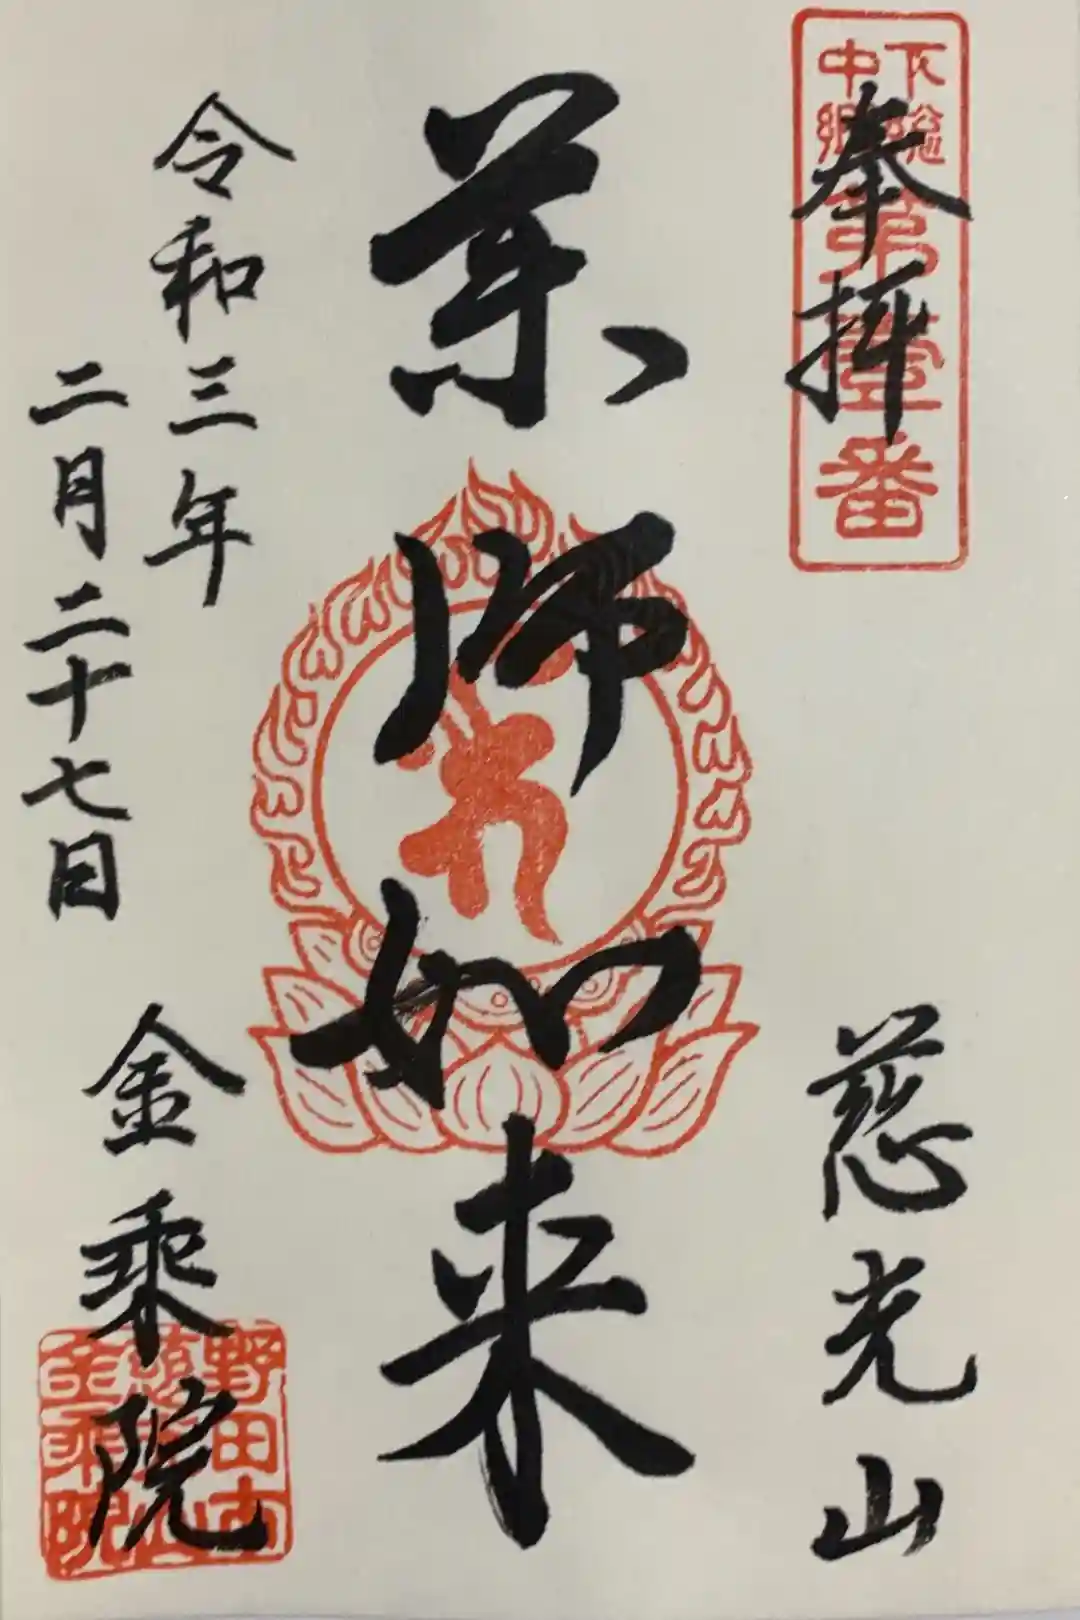 奉拝
下総
中郷
第壹番
慈光山
薬師如来
令和三年
二月二十七日
金乗院
野田市
慈光山
金乗院